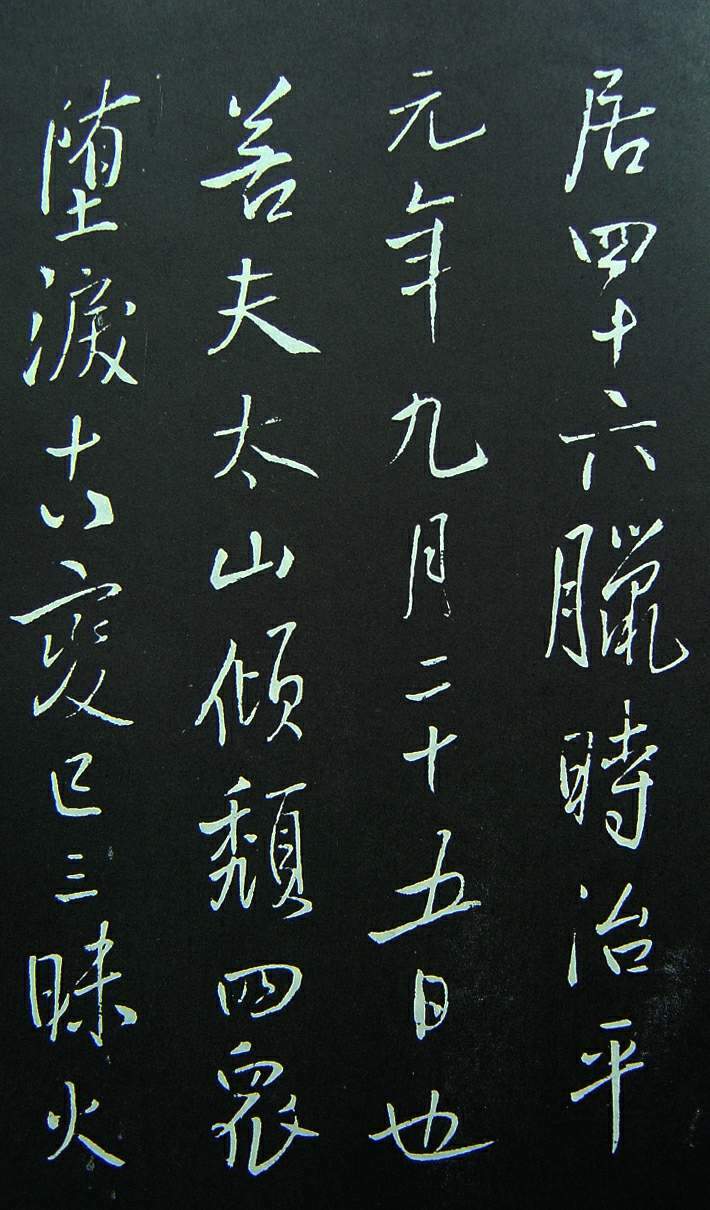 居四十六臘時治平
元年九月二十五日也
若夫太山傾頽四衆
堕淚十八變已三昧火